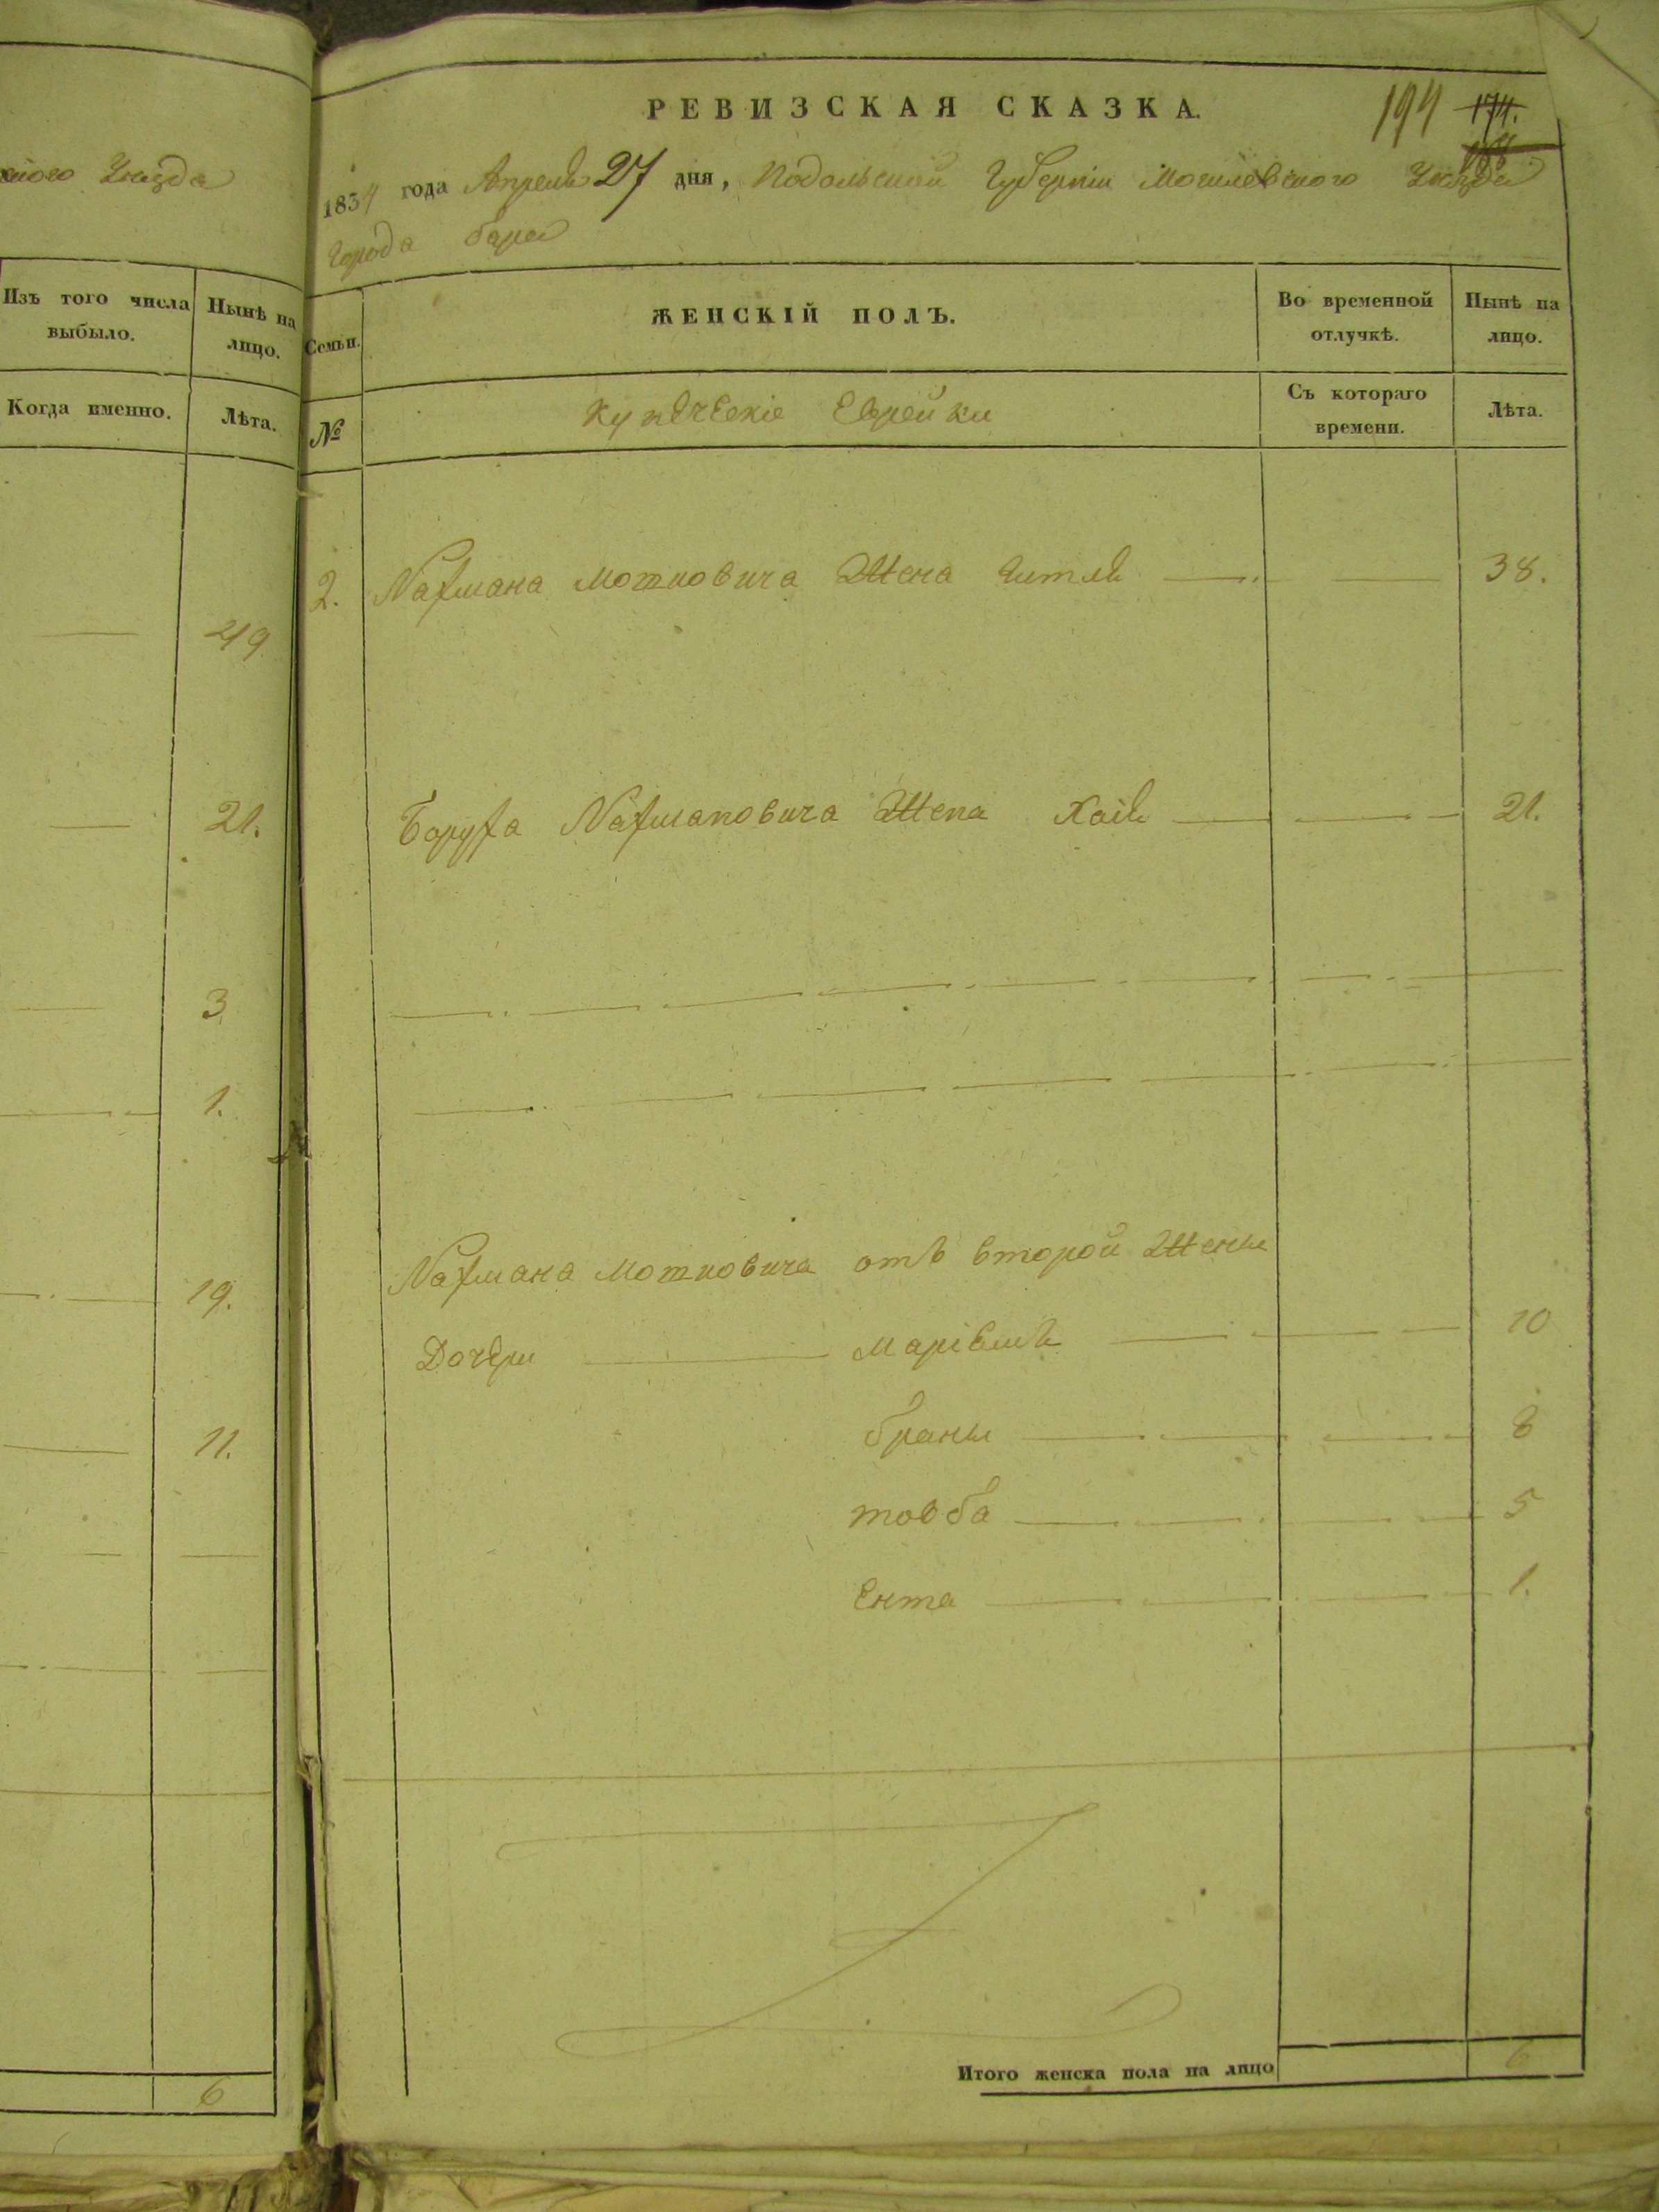 скаго Уѣзда
Изъ того числа выбыло.
Нынѣ на лицо.
Когда именно.
Лѣта.
49
21.
3
1.
19.
11.
6
РЕВИЗСКАЯ СКАЗКА.
194 174.
1834 года Апреля 27 дня, Подольской Губерніи Могилевского Уѣзда
Города Бара
Семьи.
ЖЕНСКІЙ ПОЛЪ.
Во временной отлучкѣ.
Нынѣ на лицо.
№
Купеческіе Еврейки
Съ котораго времени.
Лѣта.
2. Нахмана Мошковича Жена Гитля 38.
Боруха Нахмановича Жена Хая 21.
Нахмана Мошковича отъ второй Жены
Дочери Маріемъ 10
Браны 8
Товба 5
Ента 1.
Итого женска пола на лицо 6